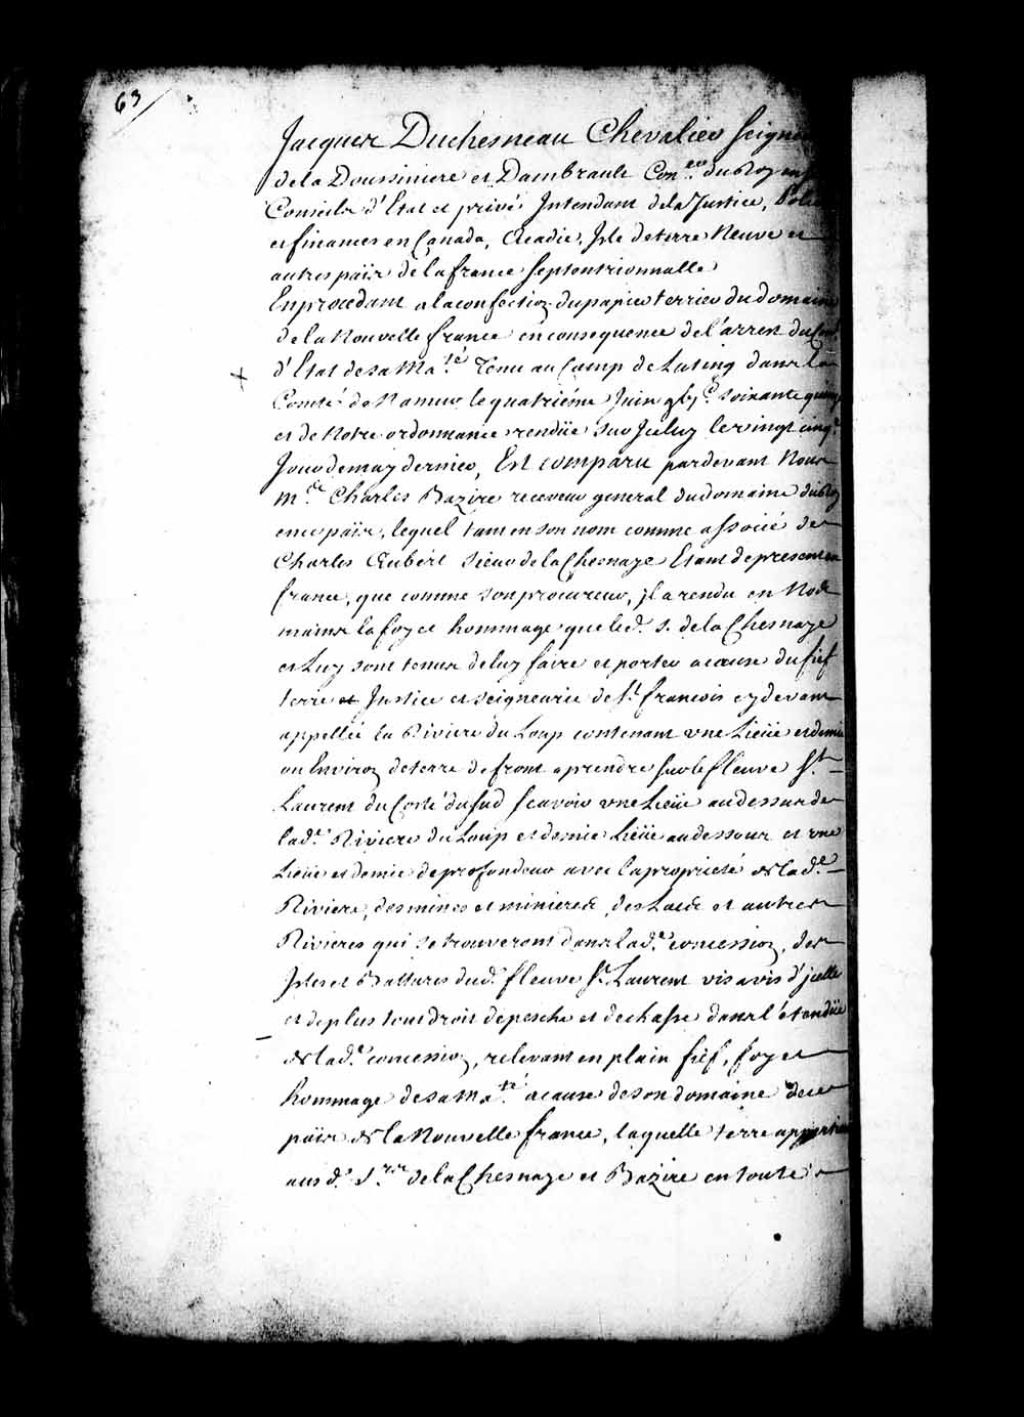 63
Jacques Duchesneau Chevalier Seign
de la Doussiniere et Dambrault Con.er du Roy en
Conseils d'Etat et privé Intendant dela Justice, Poli
et finances en Canada, Acadie, Isle de terre Neuve et
autres païs de la france septentrionnalle
En procedant a la confection du papier terrier du domaine
de la Nouvelle france en consequence de l'arrest du
d'Etat de sa Ma.té Tenu au Camp de Luting dans la
Comté de Namur le quatriéme Juin gbjC. soixante quinze
et de Notre ordonnance rendüe sur Iceluy le vingt cinq.e
Jour de may dernier, Est comparu pardevant Nous
M.e Charles Bazire receveur general du domaine du Roy
en ce païs, lequel tant en son nom comme associé de
Charles Aubert Sieur de la Chesnaye Etant de present en
france, que comme son procureur, jl a rendu en Nos
mains la foy et hommage que led. S. de la Chesnaye
et Luy sont tenus de luy faire et porter a cause du fief
terre et Justice et seigneurie de S.t francois cy devant
appellée la Riviere du Loup contenant vne Lieüe et demie
ou Environ de terre de front a prendre sur le fleuve S.t
Laurent du Costé du Sud scavoir vne Lieüe au dessus de
lad.e Riviere du Loup et demie Lieüe au dessous et vne
Lieüe et demie de profondeur avec la proprieté de lad.e
Riviere, des mines et minieres, des Lacs et autres
Rivieres qui se trouveront dans lad.e concession, des
Isles et Battures dud. fleuve S.t Laurent vis a vis d'jcelle
et de plus tout droit de pesche et de chasse dans l'étendüe
de lad.e concession, relevant en plain fief, foy et
hommage de sa Ma.té a cause de son domaine de ce
païs de la Nouvelle france, laquelle terre appartient
aus d. S.rs de la Chesnaye et Bazire en toute